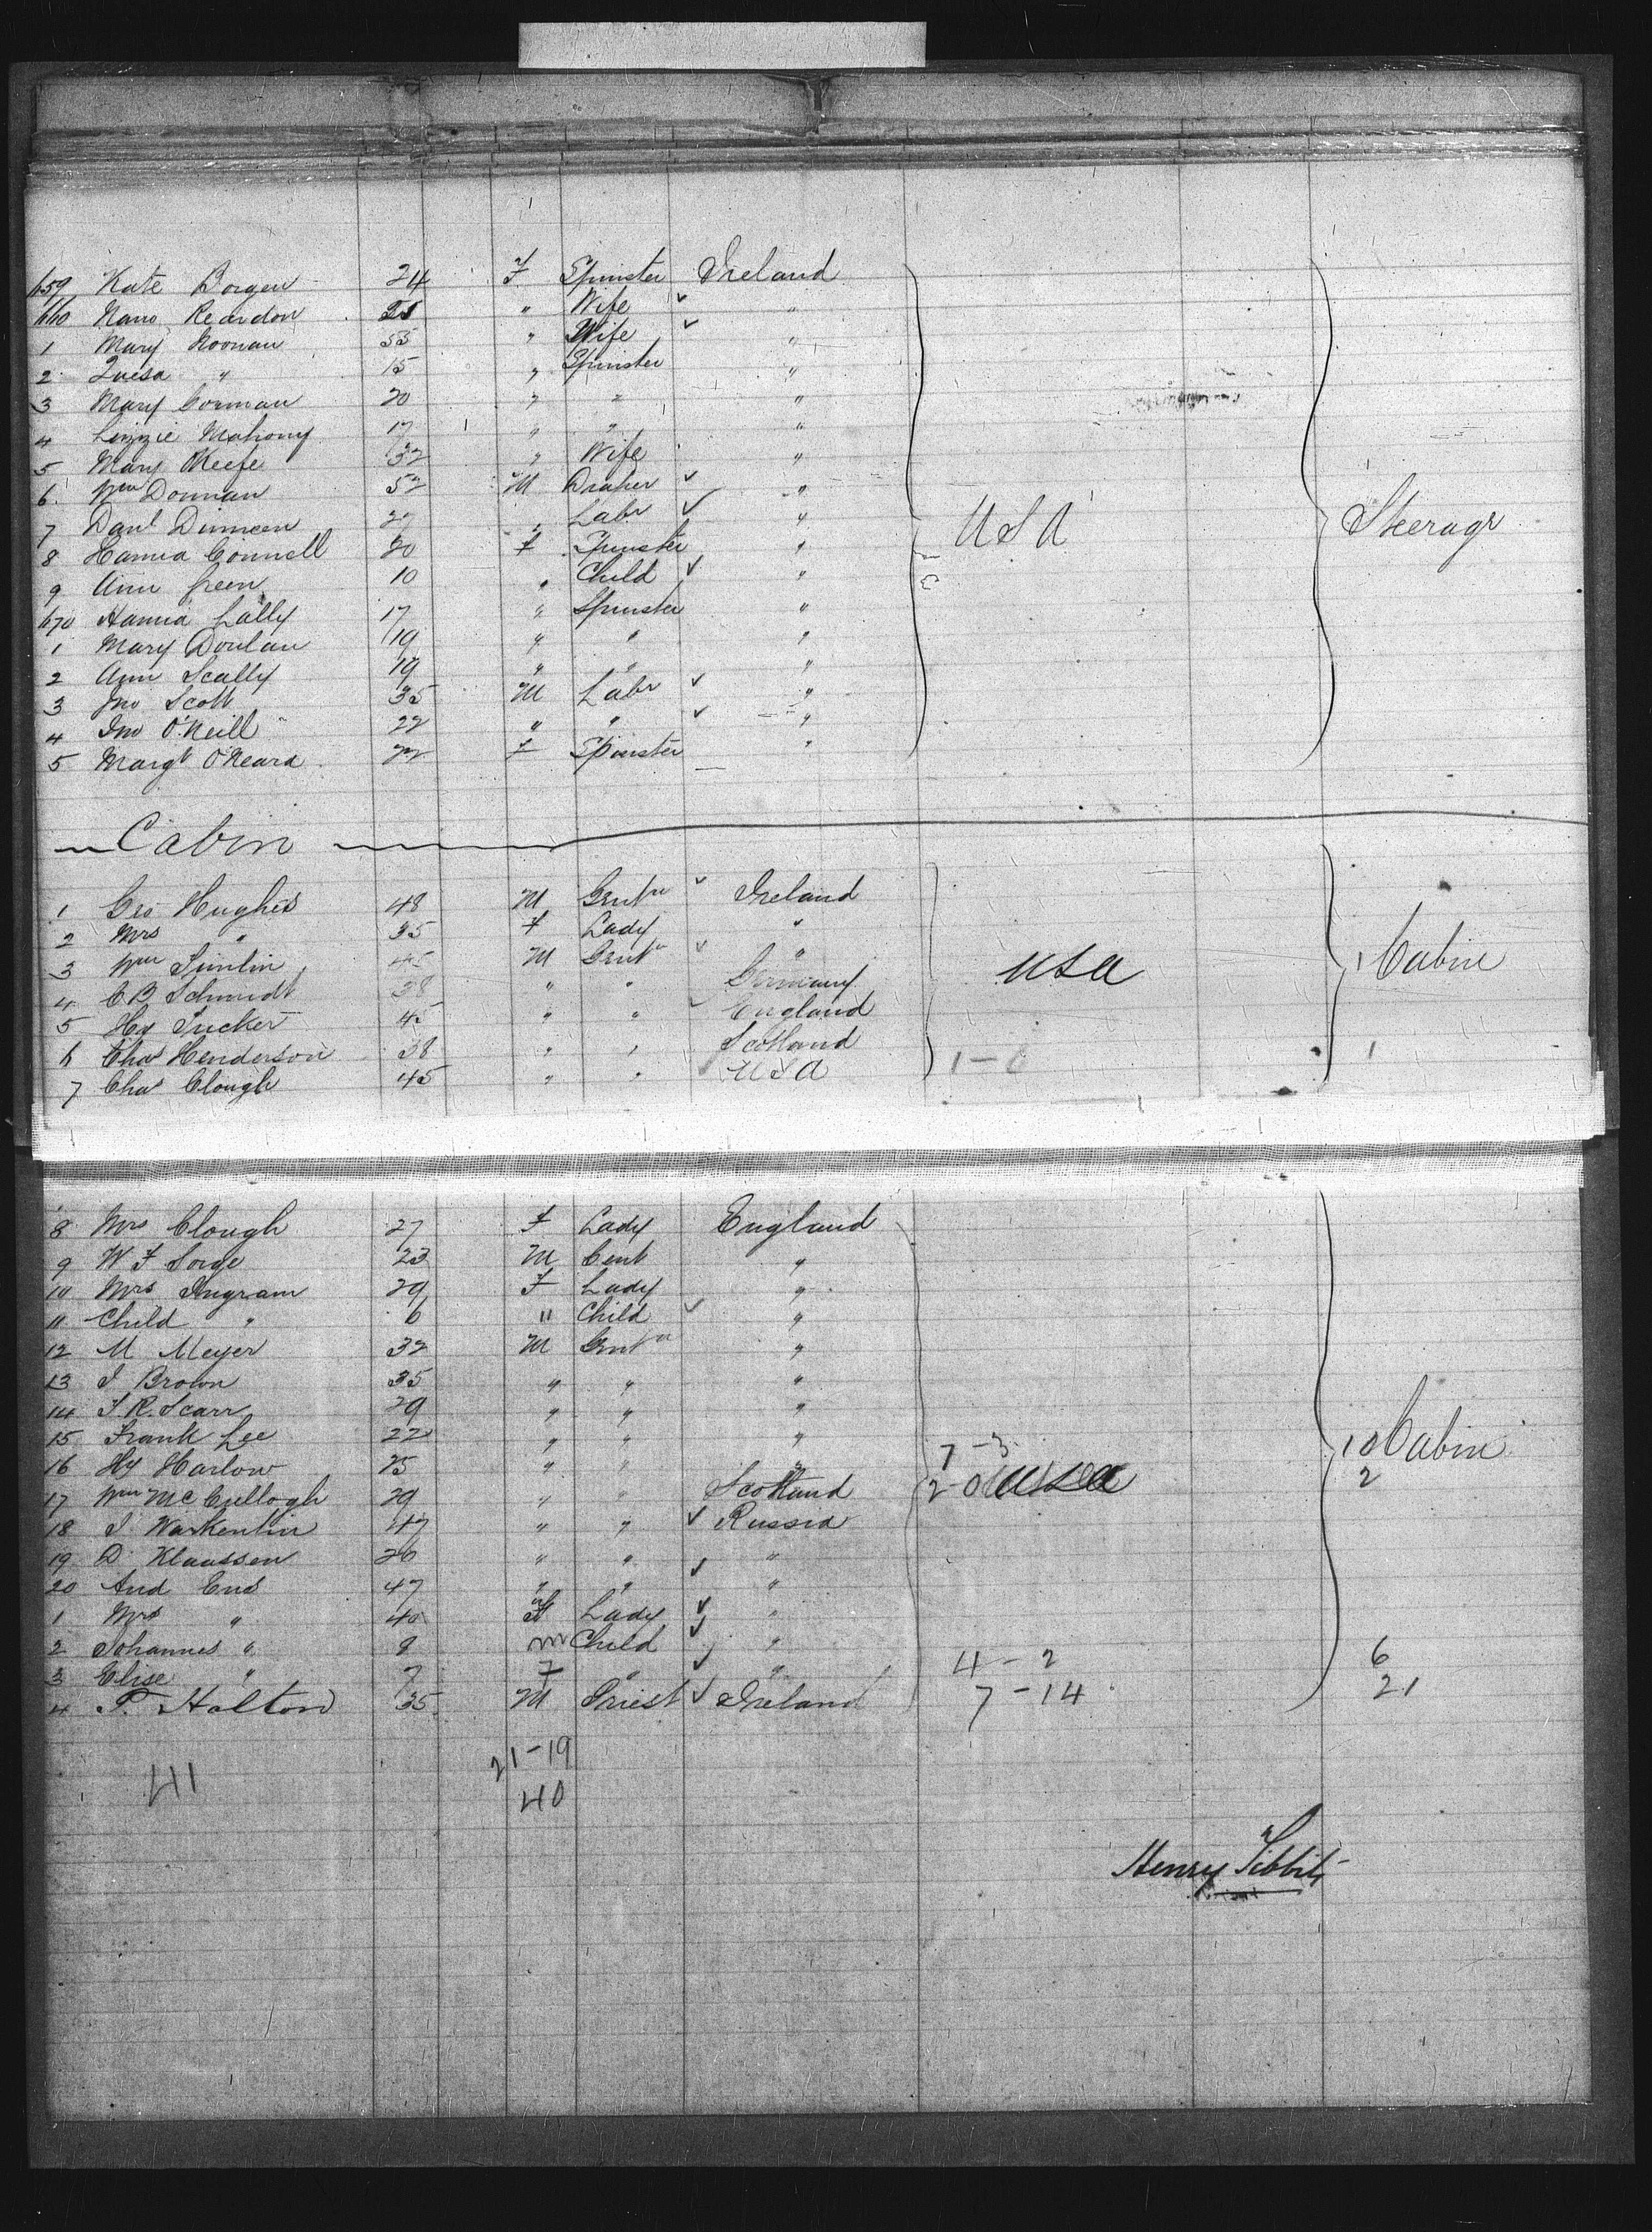 659 Kate Borgen 24 F Spinster Ireland
660 Nano Reardon " Wife ✓ "
1 Mary Noonan 55 " Wife ✓ "
2 " 15 " Spinster "
3 Mary Gorman 20 " " "
4 Lizzie Mahony 17 " " "
5 Mary O'Keefe 32 " Wife "
6 Wm Donnan 52 M Draper ✓ "
7 Danl Dinneen 27 " Labr ✓ " USA Steerage
8 Hanna Connell 20 F Spinster "
9 Ann Green 10 " Child ✓ "
670 Hanna Lally 17 " Spinster "
1 Mary Donlan 19 " " "
2 Ann Scally 19 " " "
3 Jno Scott 35 M Labr ✓ "
4 Jno O'Neill 22 " " ✓ "
5 Margt O'Meara 22 F Spinster "
Cabin
1 Geo Hughes 48 M Gentn ✓ Ireland
2 Mrs " 35 F Lady "
3 Wm 45 M Gentn ✓ " USA 1 Cabin
4 C B Schmidt 38 " " Germany
5 Hy Tucker 45 " " England
6 Chas Henderson 38 " " Scotland 1
7 Chas Clough 45 " " USA
8 Mrs Clough 27 F Lady England
9 W F Sorge 23 M Gent "
10 Mrs Ingram 29 F Lady "
11 Child " 6 " Child ✓ "
12 M Meyer 32 M Gentn "
13 J Brown 35 " " "
14 J. R. Scarr 29 " " "
15 Frank Lee 22 " " " 7 - 3 10 Cabin
16 Hy Harlow 25 " " " 2 - 0 USA 2
17 Wm McCullogh 29 " " Scotland
18 J Warkentin 47 " " ✓ Russia
19 D. Klaassen 20 " " ✓ "
20 And Ens 47 " " "
1 Mrs " 40 F Lady ✓ "
2 Johannes " 9 m Child ✓ " 4 - 2 6
3 Elise " 7 F " ✓ " 7 - 14 21
4 T. Halton 35 M Priest ✓ Ireland
41 21-19
40
Henry Tibbits